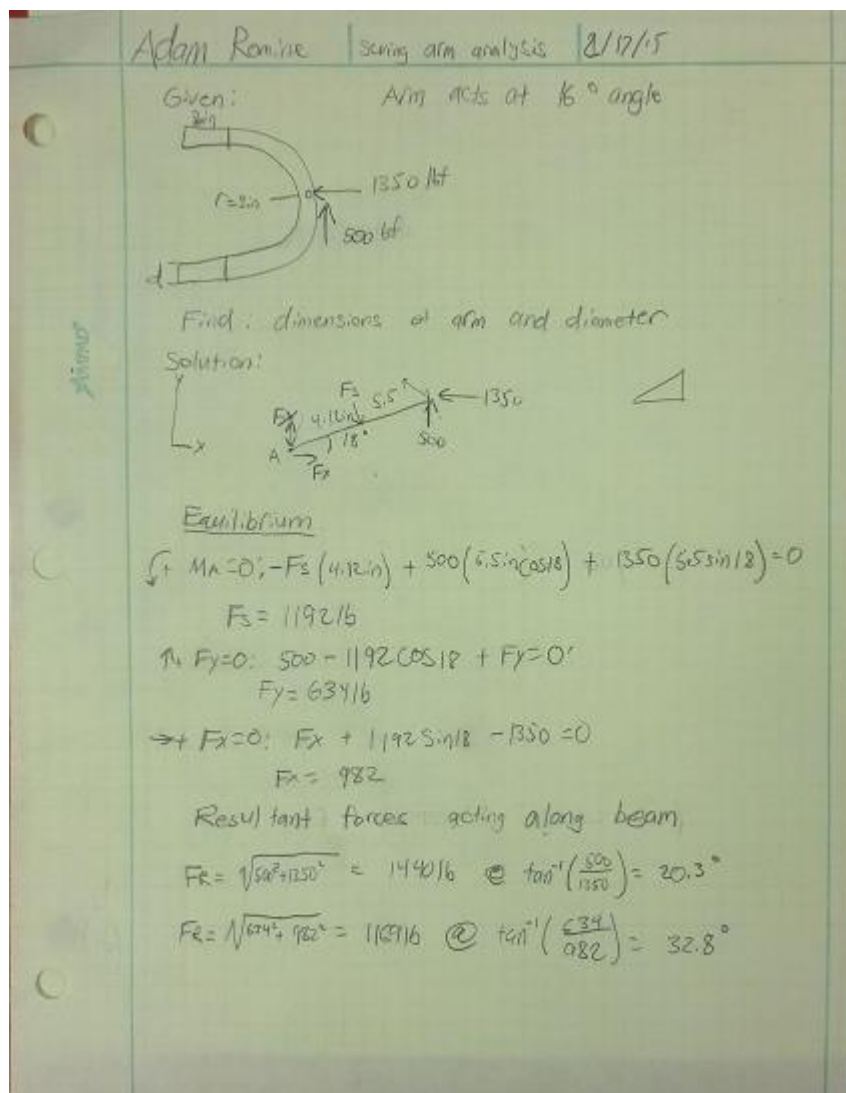 Adam Romine | Swing arm analysis | 2/17/15
Given: Arm acts at 16° angle
2in
r=2in
1350 lbf
500 lbf
d
Find: dimensions of arm and diameter
Solution:
Y
X
Fs
5.5
1350
4.12in
18°
500
A
Fx
Equilibrium
+ MA=0; -Fs(4.12in) + 500(5.5in cos18) + 1350(5.5 sin18)=0
Fs = 1192lb
↑+ Fy=0: 500 - 1192 cos18 + Fy=0
Fy= 634lb
→+ Fx=0: Fx + 1192 Sin18 - 1350 =0
Fx = 982
Resultant forces acting along beam
FR = √500²+1350² = 1440lb @ tan⁻¹(500/1350) = 20.3°
FR = √634²+982² = 1169lb @ tan⁻¹(634/982) = 32.8°